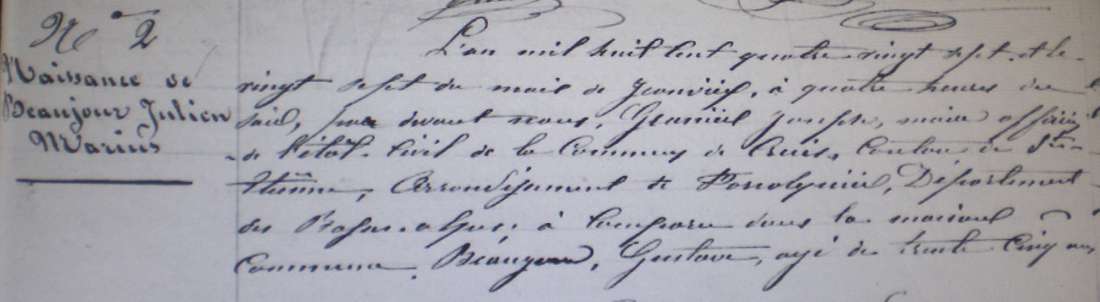 N° 2
Naissance de
Beaujour Julien
Marius
L'an mil huit cent quatre vingt sept. et le
vingt sept du mois de Janvier, à quatre heures du
soir, par devant nous, Joseph, maire officier
de l'état civil de la Commune de Cruis, Canton de St
Etienne, Arrondissement de Forcalquier, Département
des Basses-alpes, à Comparu dans la maison
Commune, Beaujour, Gustave, agé de trente Cinq ans,